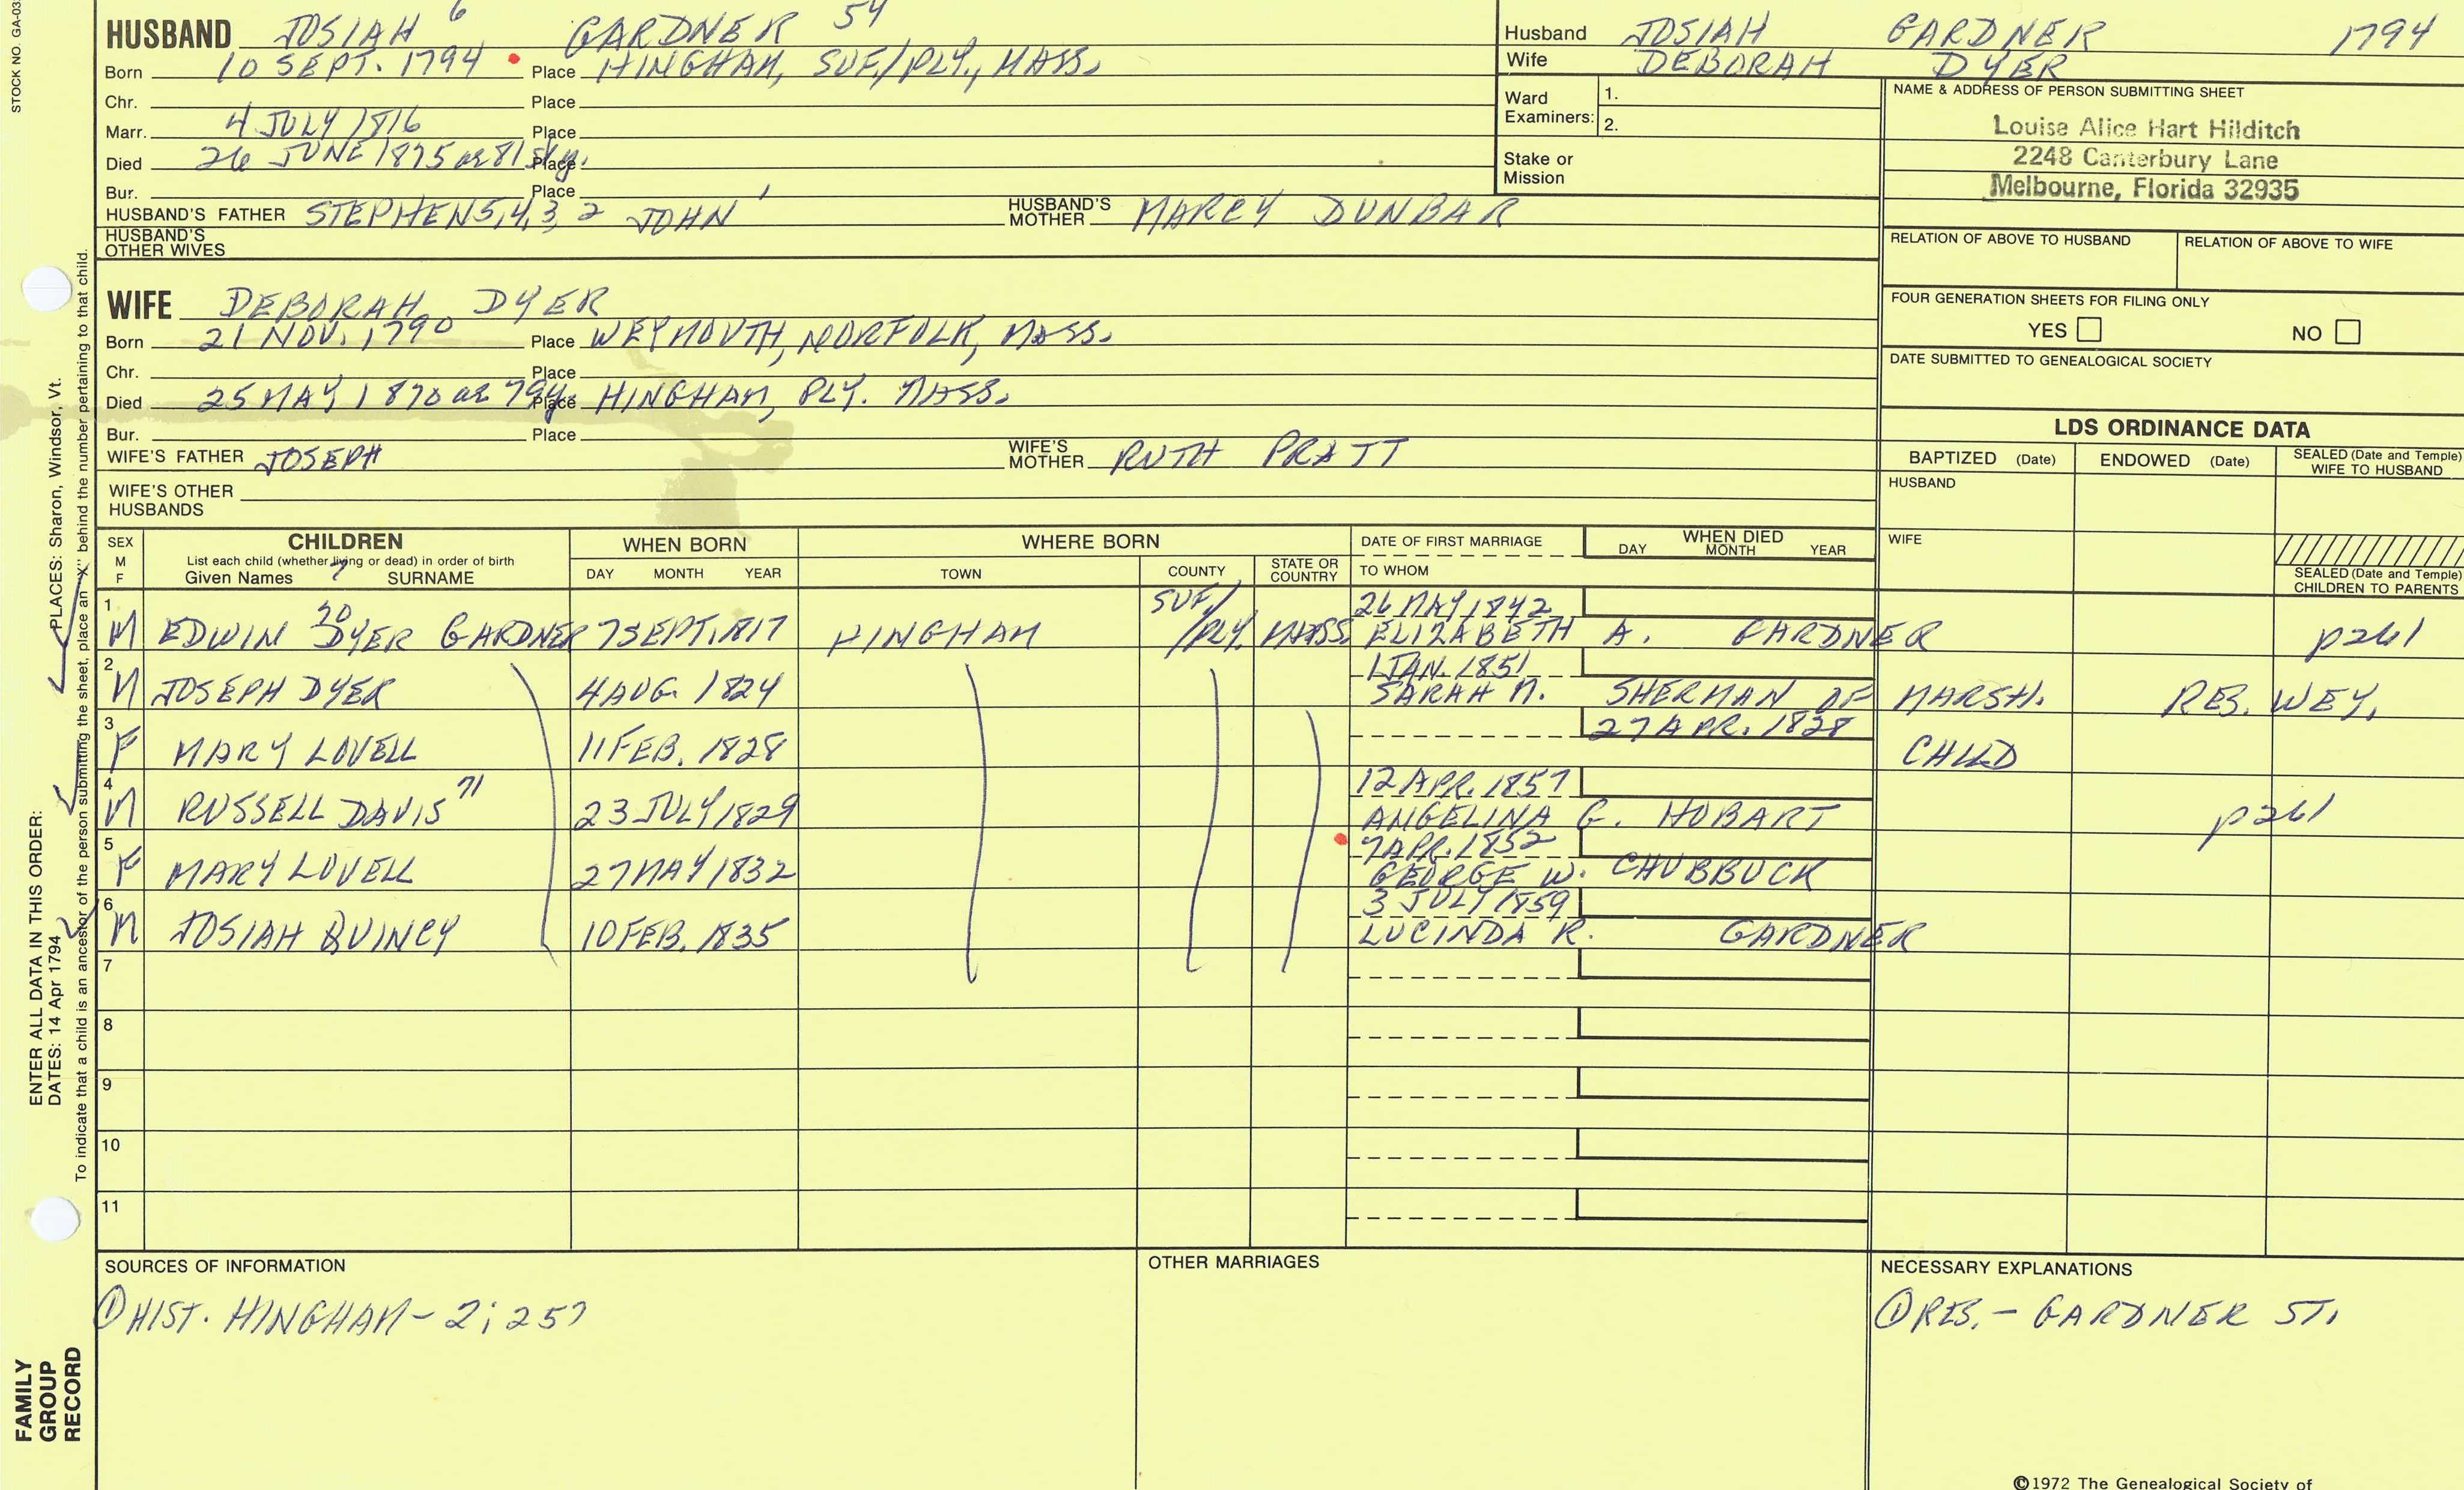 STOCK NO. GA-03
HUSBAND JOSIAH 6 GARDNER 54
Born 10 SEPT. 1794 Place HINGHAM, SUF./PLY., MASS.
Chr. Place
Marr. 4 JULY 1816 Place
Died 26 JUNE 1875 ae 81 y. Place
Bur. Place
HUSBAND'S FATHER STEPHEN 5,4,3, 2 JOHN 1 HUSBAND'S MOTHER MARCY DUNBAR
HUSBAND'S OTHER WIVES
Husband JOSIAH GARDNER 1794
Wife DEBORAH DYER
Ward Examiners: 1.
2.
Stake or Mission
NAME & ADDRESS OF PERSON SUBMITTING SHEET
Louise Alice Hart Hilditch
2248 Canterbury Lane
Melbourne, Florida 32935
RELATION OF ABOVE TO HUSBAND RELATION OF ABOVE TO WIFE
FOUR GENERATION SHEETS FOR FILING ONLY
YES NO
DATE SUBMITTED TO GENEALOGICAL SOCIETY
WIFE DEBORAH DYER
Born 21 NOV. 1790 Place WEYMOUTH, NORFOLK, MASS.
Chr. Place
Died 25 MAY, 1870 ae 79y. Place HINGHAM, PLY. MASS.
Bur. Place
WIFE'S FATHER JOSEPH WIFE'S MOTHER RUTH PRATT
WIFE'S OTHER HUSBANDS
LDS ORDINANCE DATA
BAPTIZED (Date) ENDOWED (Date) SEALED (Date and Temple) WIFE TO HUSBAND
HUSBAND
WIFE
SEALED (Date and Temple) CHILDREN TO PARENTS
SEX M F CHILDREN WHEN BORN WHERE BORN DATE OF FIRST MARRIAGE WHEN DIED
List each child (whether living or dead) in order of birth DAY MONTH YEAR
Given Names 7 SURNAME DAY MONTH YEAR TOWN COUNTY STATE OR COUNTRY TO WHOM
1 70 SUF/ 26 MAY, 1842
M EDWIN DYER GARDNER 7 SEPT. 1817 HINGHAM /PLY. MASS. ELIZABETH A. GARDNER p261
2 1 JAN. 1851
M JOSEPH DYER 4 AUG. 1824 SARAH M. SHERMAN OF MARSH. RES. WEY.
3 27 APR. 1828
F MARY LOVELL 11 FEB. 1828 CHILD
4 12 APR. 1857
M RUSSELL DAVIS 71 23 JULY 1829 ANGELINA G. HOBART p261
5 7 APR. 1852
F MARY LOVELL 27 MAY 1832 GEORGE W. CHUBBUCK
6 3 JULY 1859
M JOSIAH QUINCY 10 FEB. 1835 LUCINDA R. GARDNER
7
8
9
10
11
SOURCES OF INFORMATION OTHER MARRIAGES NECESSARY EXPLANATIONS
① HIST. HINGHAM - 2; 257 ① RES. - GARDNER ST.
©1972 The Genealogical Society of
ENTER ALL DATA IN THIS ORDER:
DATES: 14 Apr 1794 PLACES: Sharon, Windsor, Vt.
To indicate that a child is an ancestor of the person submitting the sheet, place an "X" behind the number pertaining to that child.
FAMILY
GROUP
RECORD